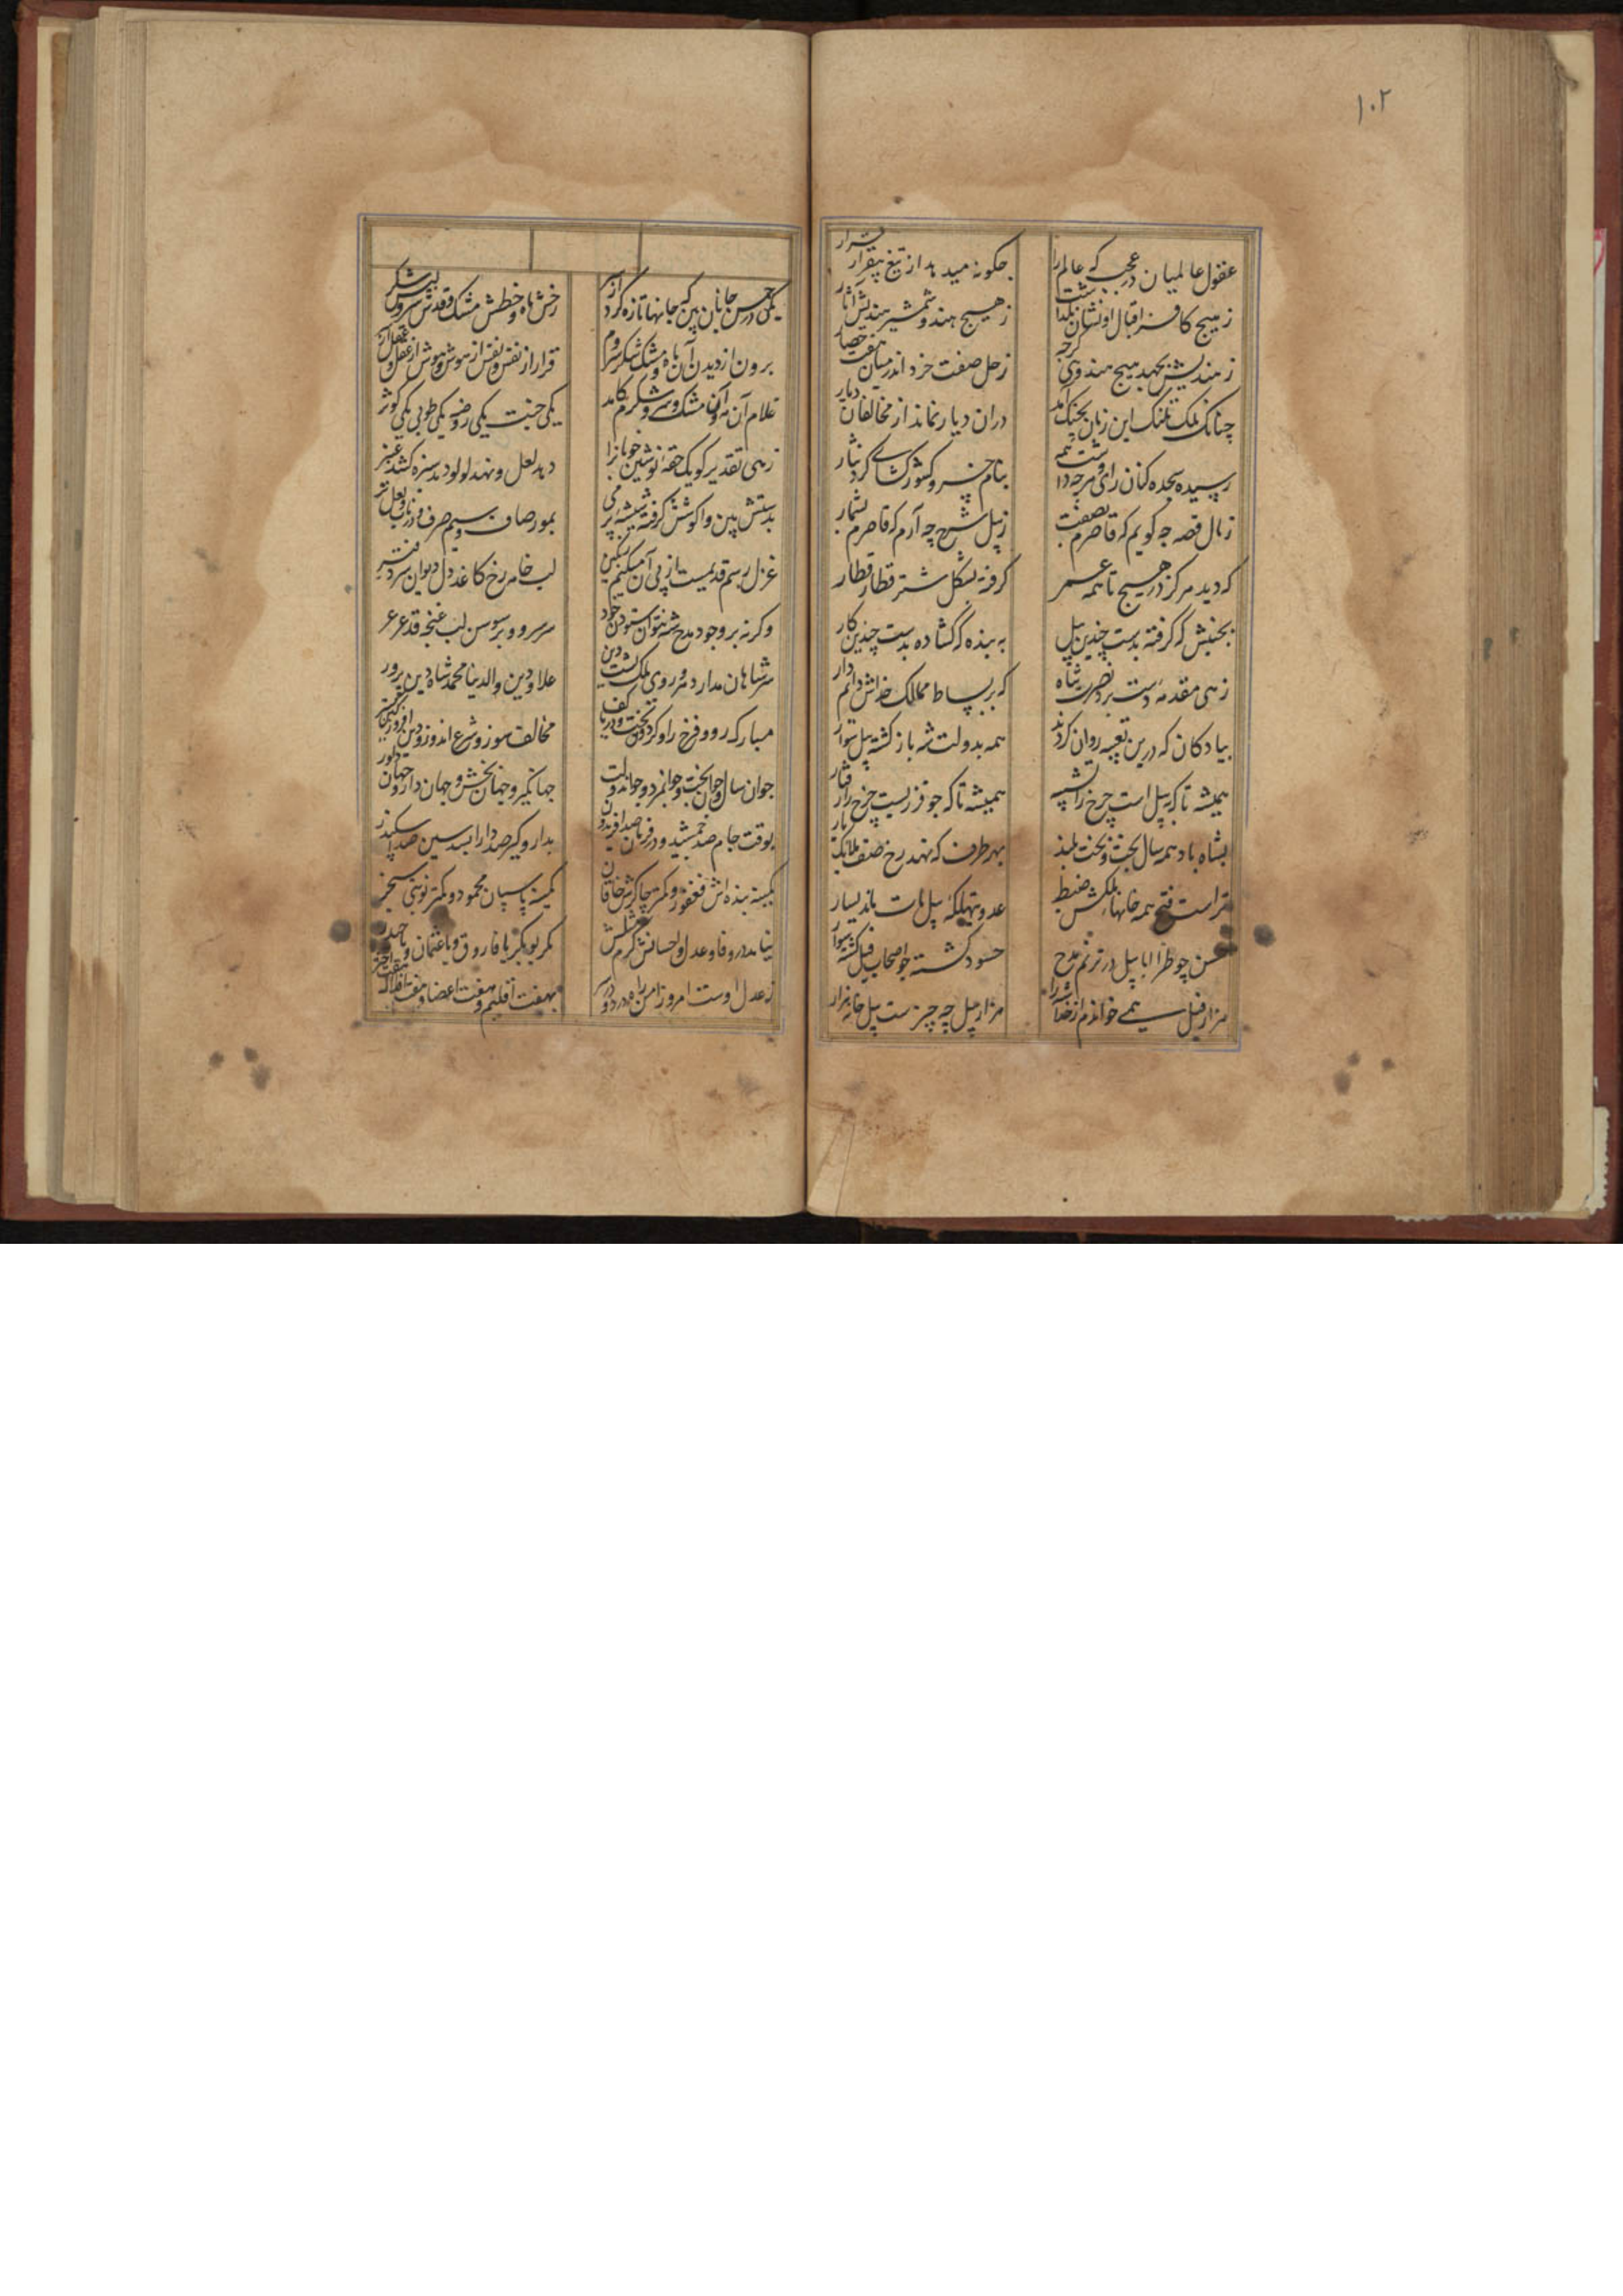 ۱۰۲
عقول عالمیان در عجب که عالم را
چکونه میدهد از تیغ بیقرار قرار
ز هیچ کافر اقبال او نشان نکذاشت
ز هیچ هند و شمشیر هندیش آثار
ز هندیش بجهد هیچ هندوی کرچه
زحل صفت خزد اندر میان هفت حصار
چنانک ملک تلنک این زمان بچنک آمد
دران دیار نماند از مخالفان دیار
رسیده سجده کنان رای و هرچه داشت همه
بنام خسرو کشور کشای کرد نثار
ز مال قصه چه کویم که قاصرم بصفت
ز پیل شرح چه آرم که قاصرم بشمار
که دید هرکز در هیچ تا همه عمر
کرفته بشکل شتر قطار قطار
بجنبش که کرفته بدست چندین پیل
به بنده که کشاده بدست چندین کار
زهی مقدمه دست برد نصرت شاه
که بر بساط ممالک خداش دایم دار
پیادکان که درین تعبیه روان کردند
همه بدولت شه باز کشته پیل سوار
همیشه تا که پیل است چرخ را تشبیه
همیشه تا که چو فرزیست چرخ را رفتار
بشاه باد همه سال بخت و تخت بلند
بهر طرف که نهد رخ صف ملایک یار
تراست فتح همه خانها بملکش ضبط
عدو بتهلکه پیل مات باد یسار
حسن چو طرا ابابیل در ترنم مدح
حسود کشته چو اصحاب فیل کشته سوار
هزار فیل همی خواندم از خدا شه را
هزار پیل چه چیزست پیل خانه هزار
یکی در حسن جانان بین که جانها تازه کرد از سر
رخش ماه و خطش مشک و قدش سرو و لبش شکر
برون از دیدن آن ماه و مشک و شکر و سروم
قرار از نفس و نفس از هوش و هوش از عقل و عقل از سر
غلام آن مه و آن مشک و سرو و شکرم کامد
یکی جنت یکی روضه یکی طوبی یکی کوثر
زهی تقدیر کو یک حقه نوشین خوبانرا
دهد لعل و نهد لولو دمد سبزه کشد عنبر
بدستش بین و آکوشش کرفته شیشه پر می
بمور صاف و سیم صرف و در ناب و لعل تر
غزل رسم قدیمست از پی آن میکنم رنکین
لب خامه رخ کاغذ دل دیوان سر دفتر
وکرنه بر وجود مدح شه نتوان ستودن خود
سر سرو و بر سوسن لب غنچه قد عرعر
سر شاهان مدار دهر و روی ملک پشت دین
علاء دین والدنیا محمد شاه دین پرور
مبارک رو و فرخ راو کردون تخت و دریا کف
مخالف سوز و شرع اندوز و دین افروز
جوان سال و جوان بخت و جوانمرد و جوان دولت
جهانکیر و جهان بخش و جهاندار و جهان داور
بوقت جام صد جمشید و در فرمان صد افریدون
بدار و کیر صد دارا بسد سین صد اسکندر
کمینه بنده اش فغفور و کمتر چاکرش خاقان
کمینه پاسبان محمود و کمتر نوبتی سنجر
نیامد در وفا و عدل و احسانش کرم مثلش
مکر بوبکر یا فاروق و یا عثمان و یا حیدر
ز عدل اوست امروز امن راه در دور
بهفت اقلیم و هفت اعضا و هفت افلاک هفت اختر